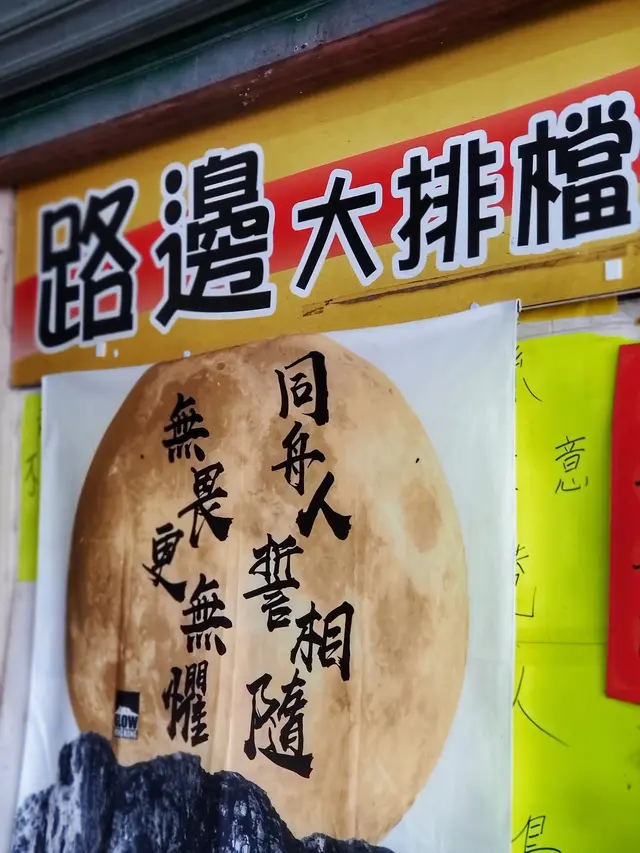 路邊大排檔
同舟人誓相隨
無畏更無懼
意
人